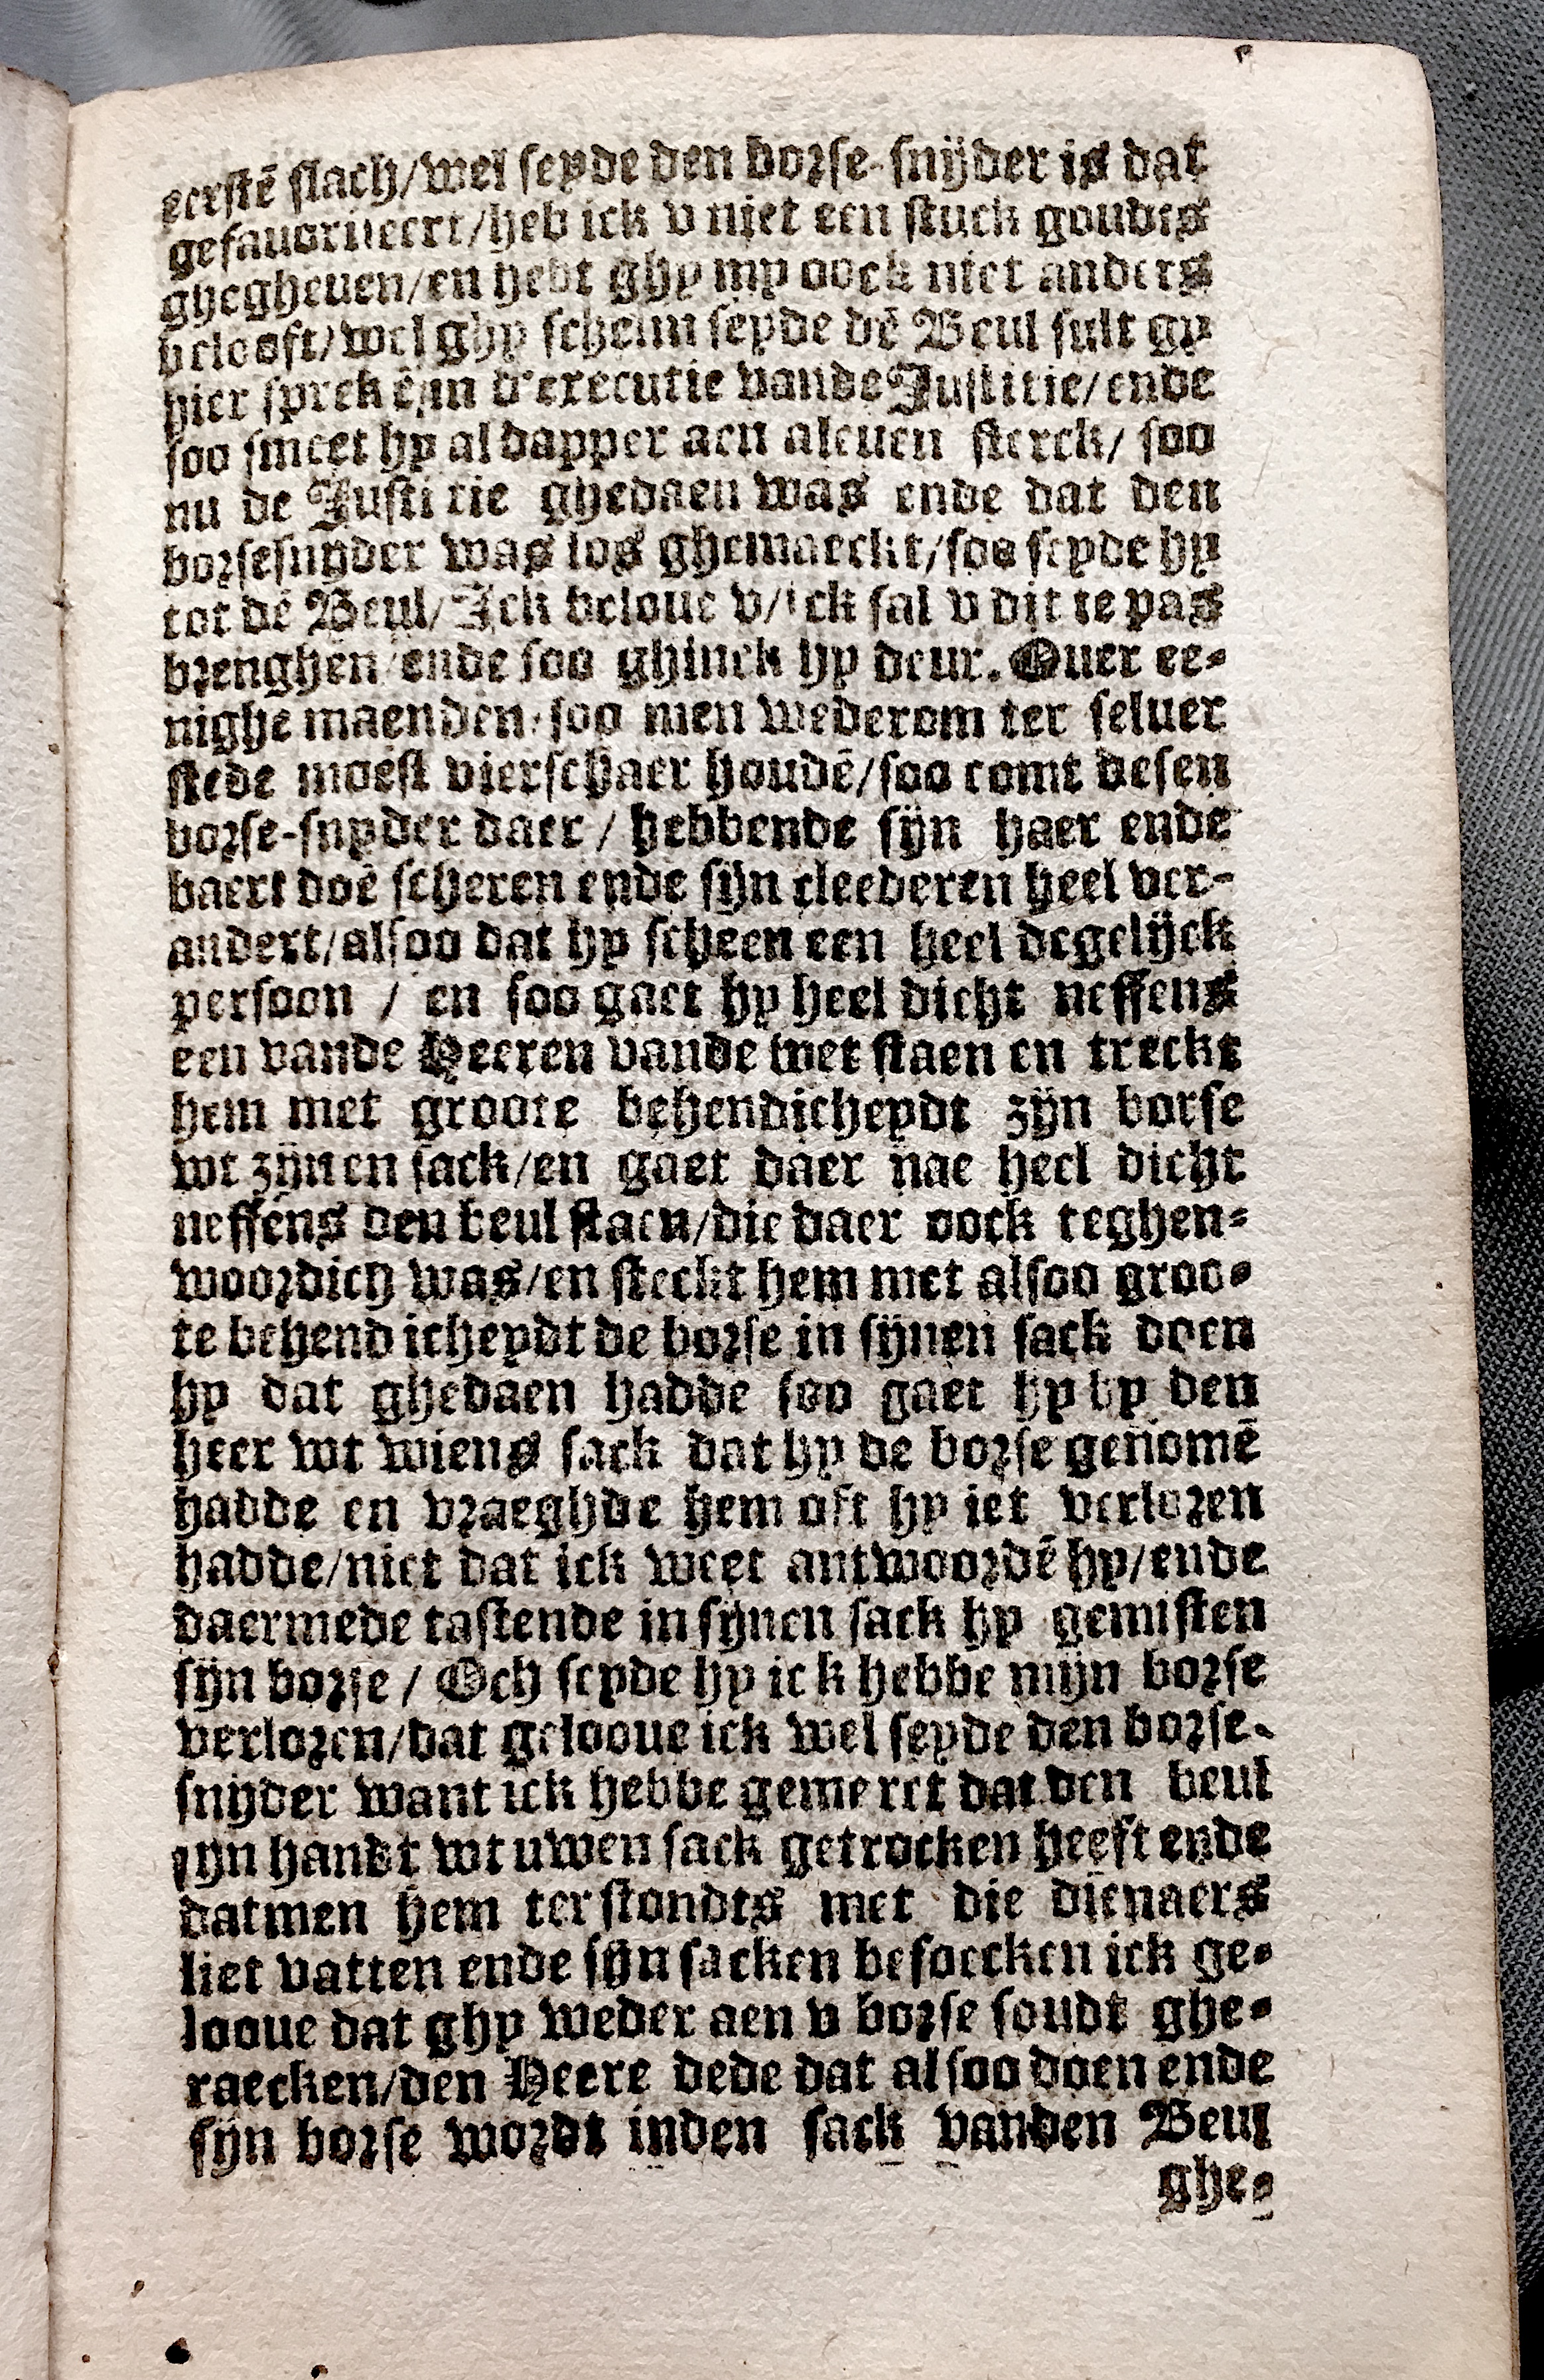 eerstē slach/wel seyde den borse-snijder is dat
gefauoriseert/heb ick v niet een stuck goudts
ghegheuen/en hebt ghy my oock niet anders
belooft/wel ghy schelm seyde dē Beul sult gy
hier sprekē/in d'executie vande Justitie/ende
soo smeet hy al dapper aen aleuen sterck/ soo
nu de Justitie ghedaen was ende dat den
borsesnyder was los ghemaeckt/soo seyde hy
tot dē Beul/Ick beloue v/ick sal v dit te pas
brenghen/ende soo ghinck hy deur. Ouer ee-
nighe maenden/soo men wederom ter seluer
stede moest vierschaer houdē/soo comt desen
borse-snyder daer / hebbende sijn haer ende
baert doē scheren ende sijn cleederen heel ver-
andert/alsoo dat hy scheen een heel degelijck
persoon / en soo gaet hy heel dicht neffens
een vande Heeren vande wet staen en treckt
hem met groote behendicheydt zijn borse
wt zijnen sack/en gaet daer nae heel dicht
neffens den beul staen/die daer oock teghen-
woordich was/en steckt hem met alsoo groo-
te behendicheydt de borse in sijnen sack doen
hy dat ghedaen hadde soo gaet hy by den
heer wt wiens sack dat hy de borse genomē
hadde en vraeghde hem oft hy iet verloren
hadde/niet dat ick weet antwoordē hy/ende
daermede tastende in sijnen sack hy gemisten
sijn borse / Och seyde hy ick hebbe mijn borse
verloren/dat gelooue ick wel seyde den borse-
snijder want ick hebbe gemerct dat den beul
sijn handt wt uwen sack getrocken heeft ende
datmen hem terstondts met die dienaers
liet vatten ende sijn sacken besoecken ick ge-
looue dat ghy weder aen v borse soudt ghe-
raecken/den Heere dede dat alsoo doen ende
sijn borse wordt inden sack vanden Beul
ghe-